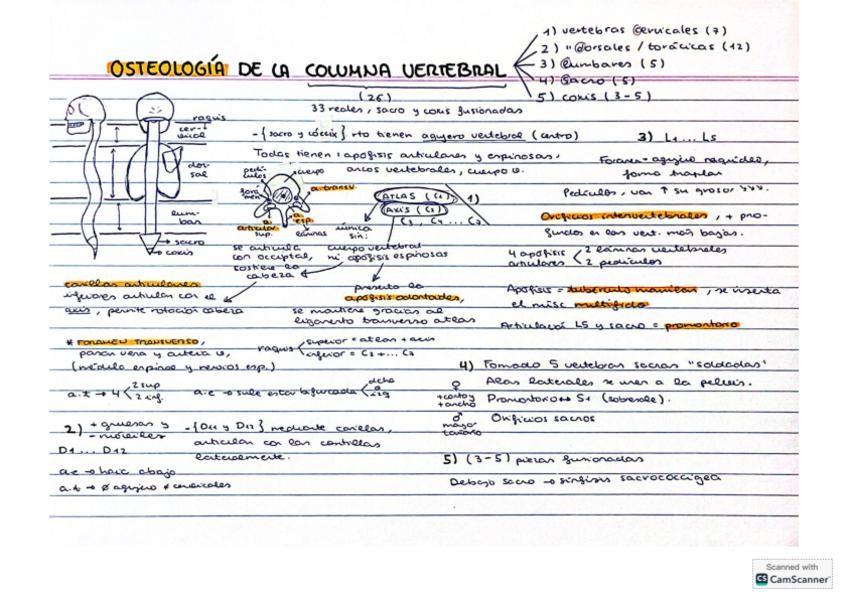 OSTEOLOGÍA DE LA COLUMNA VERTEBRAL
(26)
1) vertebras cervicales (7)
2) " dorsales / torácicas (12)
3) lumbares (5)
4) Sacro (5)
5) coxis (3-5)
33 reales, sacro y coxis fusionadas
raquis
cervical
dorsal
lumbar
sacro
coxis
-{sacro y cóccix} no tienen agujero vertebral (centro)
Todas tienen: apófisis articulares y espinosas,
arcos vertebrales, cuerpo v.
pedículos
cuerpo
a. transv.
foramen
a. articular sup.
a. esp.
láminas
ATLAS (C1)
1)
AXIS (C2)
C3, C4 ... C7
única sin:
cuerpo vertebral
ni apófisis espinosas
se articula
con occipital,
sostiene la
cabeza
carillas articulares
inferiores articulan con el
axis, permite rotación cabeza
presenta la
apófisis odontoides,
se mantiene gracias al
ligamento transverso atlas
* FORAMEN TRANSVERSO,
pasan vena y arteria v,
(médula espinal y nervios esp.)
raquis
superior = atlas + axis
inferior = C3 + ... C7
a.t → 4
2 sup
2 inf.
a.e → suele estar bifurcada
dcha
izq
2) + gruesas y
- móviles
D1 ... D12
a.e → hacia abajo
a.t → ∅ agujero ≠ cervicales
-{D11 y D12} mediante carillas,
articulan con las costillas
lateralmente.
3) L1 ... L5
Foramen = agujero
forma triangular
Pedículos, van ↑ su grosor
Orificios intervertebrales, + pro-
fundos en las vert. más bajas.
4 apófisis
articulares
2 láminas vertebrales
2 pedículos
Apófisis = tubérculo mamilar, se inserta
el músc multífido
Articulación L5 y sacro = promontorio
4) Formado 5 vertebras sacras "soldadas"
Alas laterales se unen a la pelvis.
♀
+ corto y
+ ancho
Promontorio → S1 (sobresale).
♂
mayor
tamaño
Orificios sacros
5) (3-5) piezas fusionadas
Debajo sacro → sínfisis sacrococcígea
Scanned with
CS CamScanner